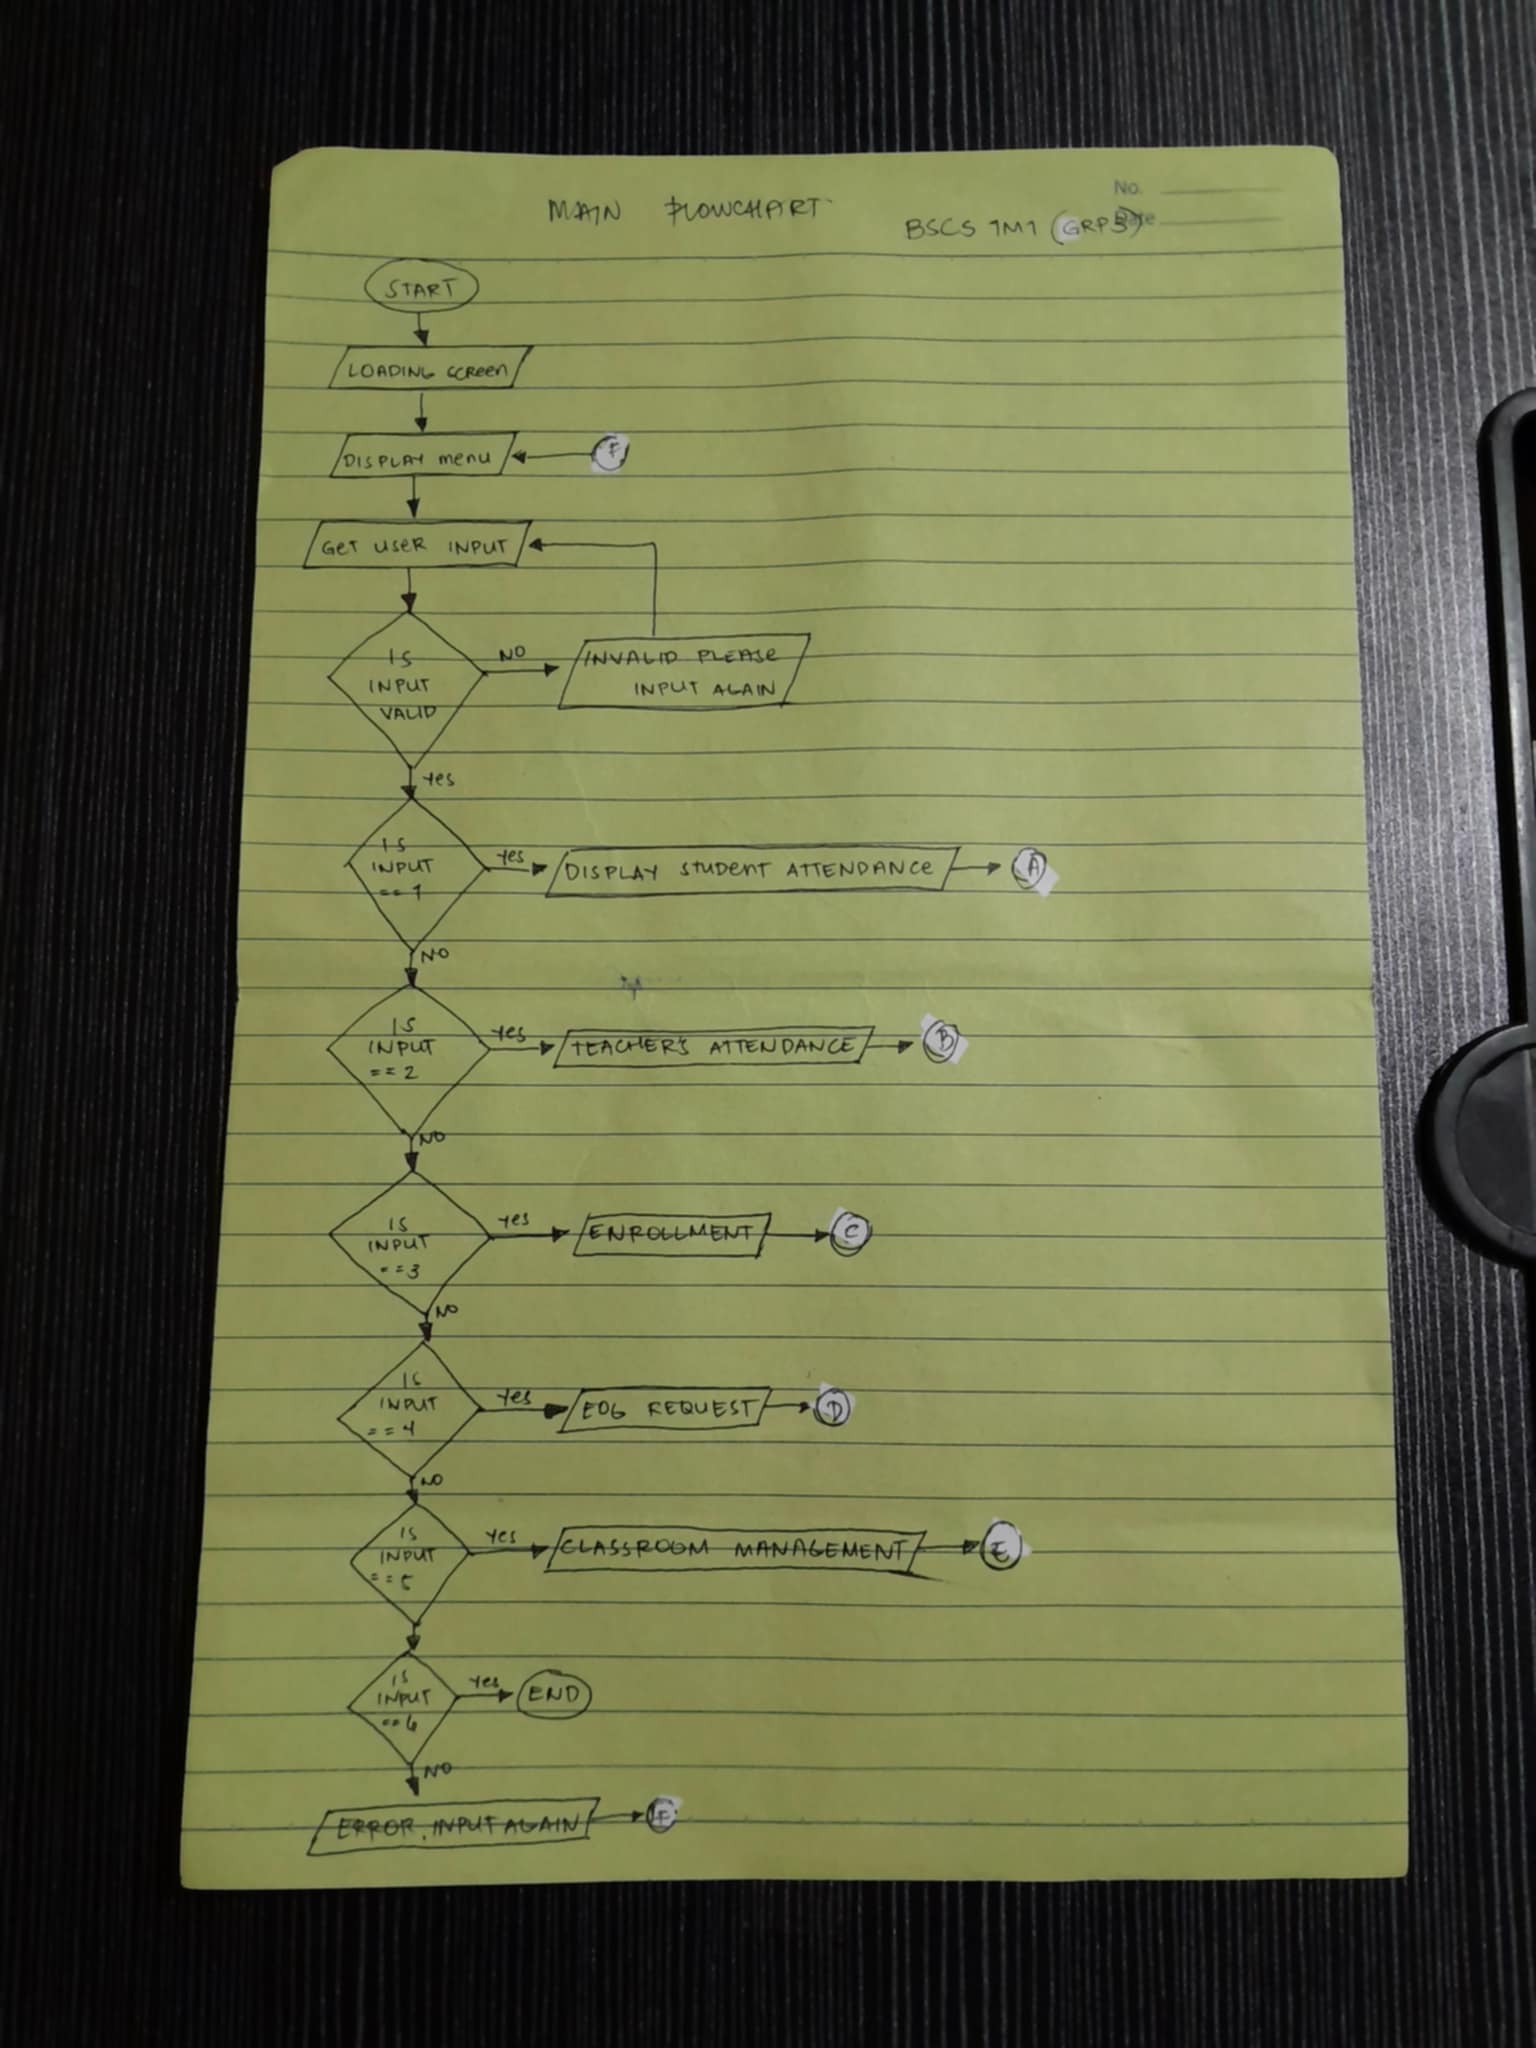 No.
MAIN FLOWCHART
Date
BSCS 1M1 (GRP 3)
START
LOADING SCREEN
DISPLAY MENU
F
GET USER INPUT
IS
INPUT
VALID
NO
INVALID PLEASE
INPUT AGAIN
Yes
IS
INPUT
== 1
Yes
DISPLAY STUDENT ATTENDANCE
A
NO
IS
INPUT
== 2
Yes
TEACHER'S ATTENDANCE
B
NO
IS
INPUT
== 3
Yes
ENROLLMENT
C
NO
IS
INPUT
== 4
Yes
EOG REQUEST
D
NO
IS
INPUT
== 5
Yes
CLASSROOM MANAGEMENT
E
IS
INPUT
== 6
Yes
END
NO
ERROR, INPUT AGAIN
F